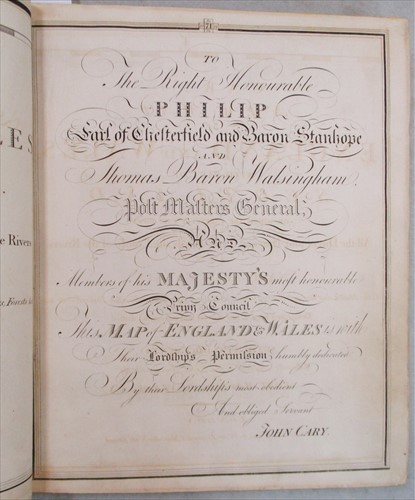 TO
The Right Honourable
PHILIP
Earl of Chesterfield and Baron Stanhope
AND
Thomas Baron Walsingham,
Post Masters General,
AND
Members of his MAJESTY'S most honourable
Privy Council
This MAP of ENGLAND & WALES is with
Their Lordship's Permission humbly dedicated
By their Lordship's most obedient
And obliged Servant
JOHN CARY.
ES
e Rivers